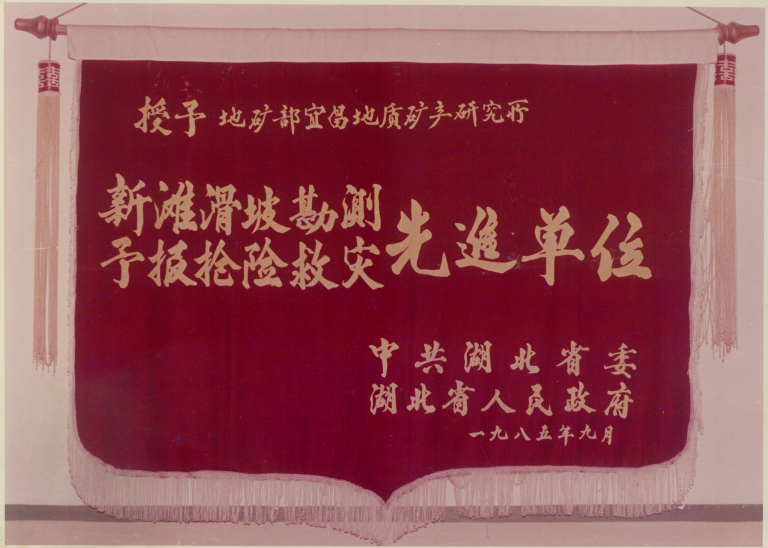 授予 地矿部宜昌地质矿产研究所
新滩滑坡勘测
予报抢险救灾
先進单位
中共湖北省委
湖北省人民政府
一九八五年九月